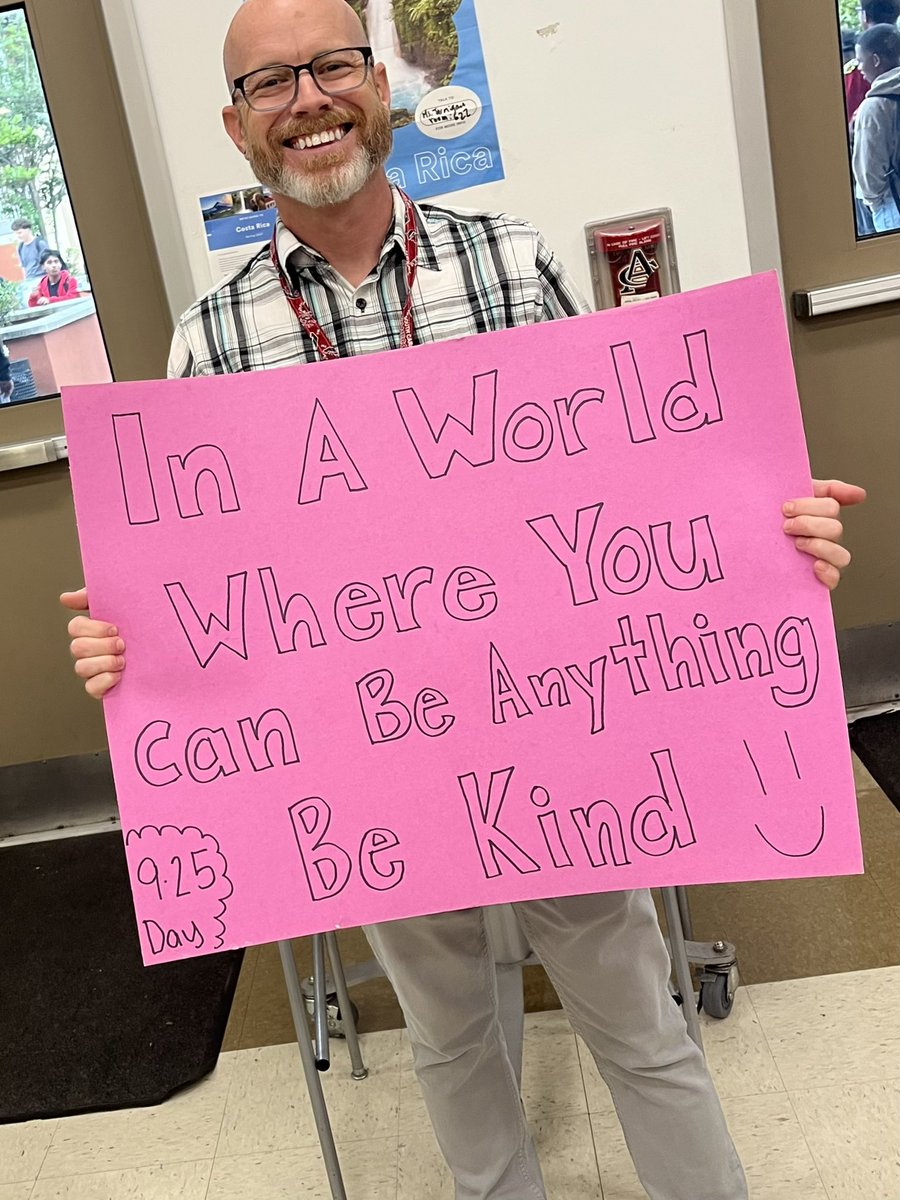 TALK TO
room: 622
FOR MORE INFO
a Rica
Costa Rica
In A World
Where You
Can Be Anything
Be Kind
9.25
Day